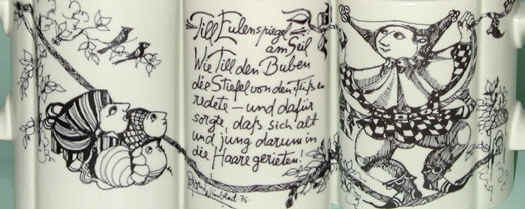 Till Eulenspiegel
am Seil
Wie Till den Buben
die Stiefel von den Füßen
redete – und dafür
sorgt, daß sich alt
und jung darum in
die Haare gerieten!